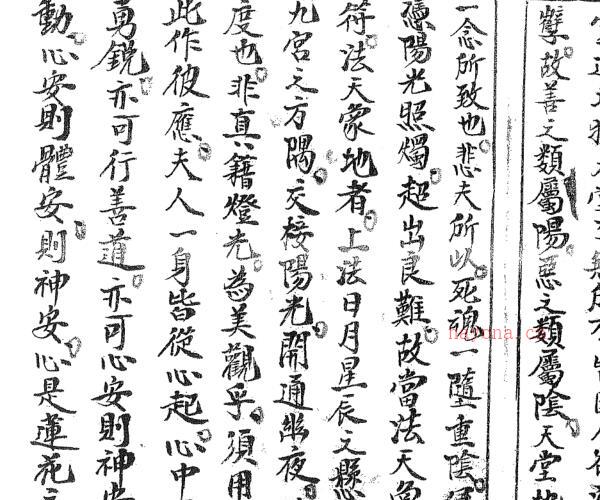 孽故善之類屬陽惡之類屬陰天堂
一念所致也悲夫所以死魂一墮重陰
憑陽光照燭超出良難故當法天
符法天象地者上法日月星辰之懸
九宮之方隅交接陽光開通幽夜
度也非真籍燈光為美觀乎須用
此作彼應夫人一身皆從心起心中
勇銳亦可行善道亦可心安則神
動心安則體安則神安心是蓮花